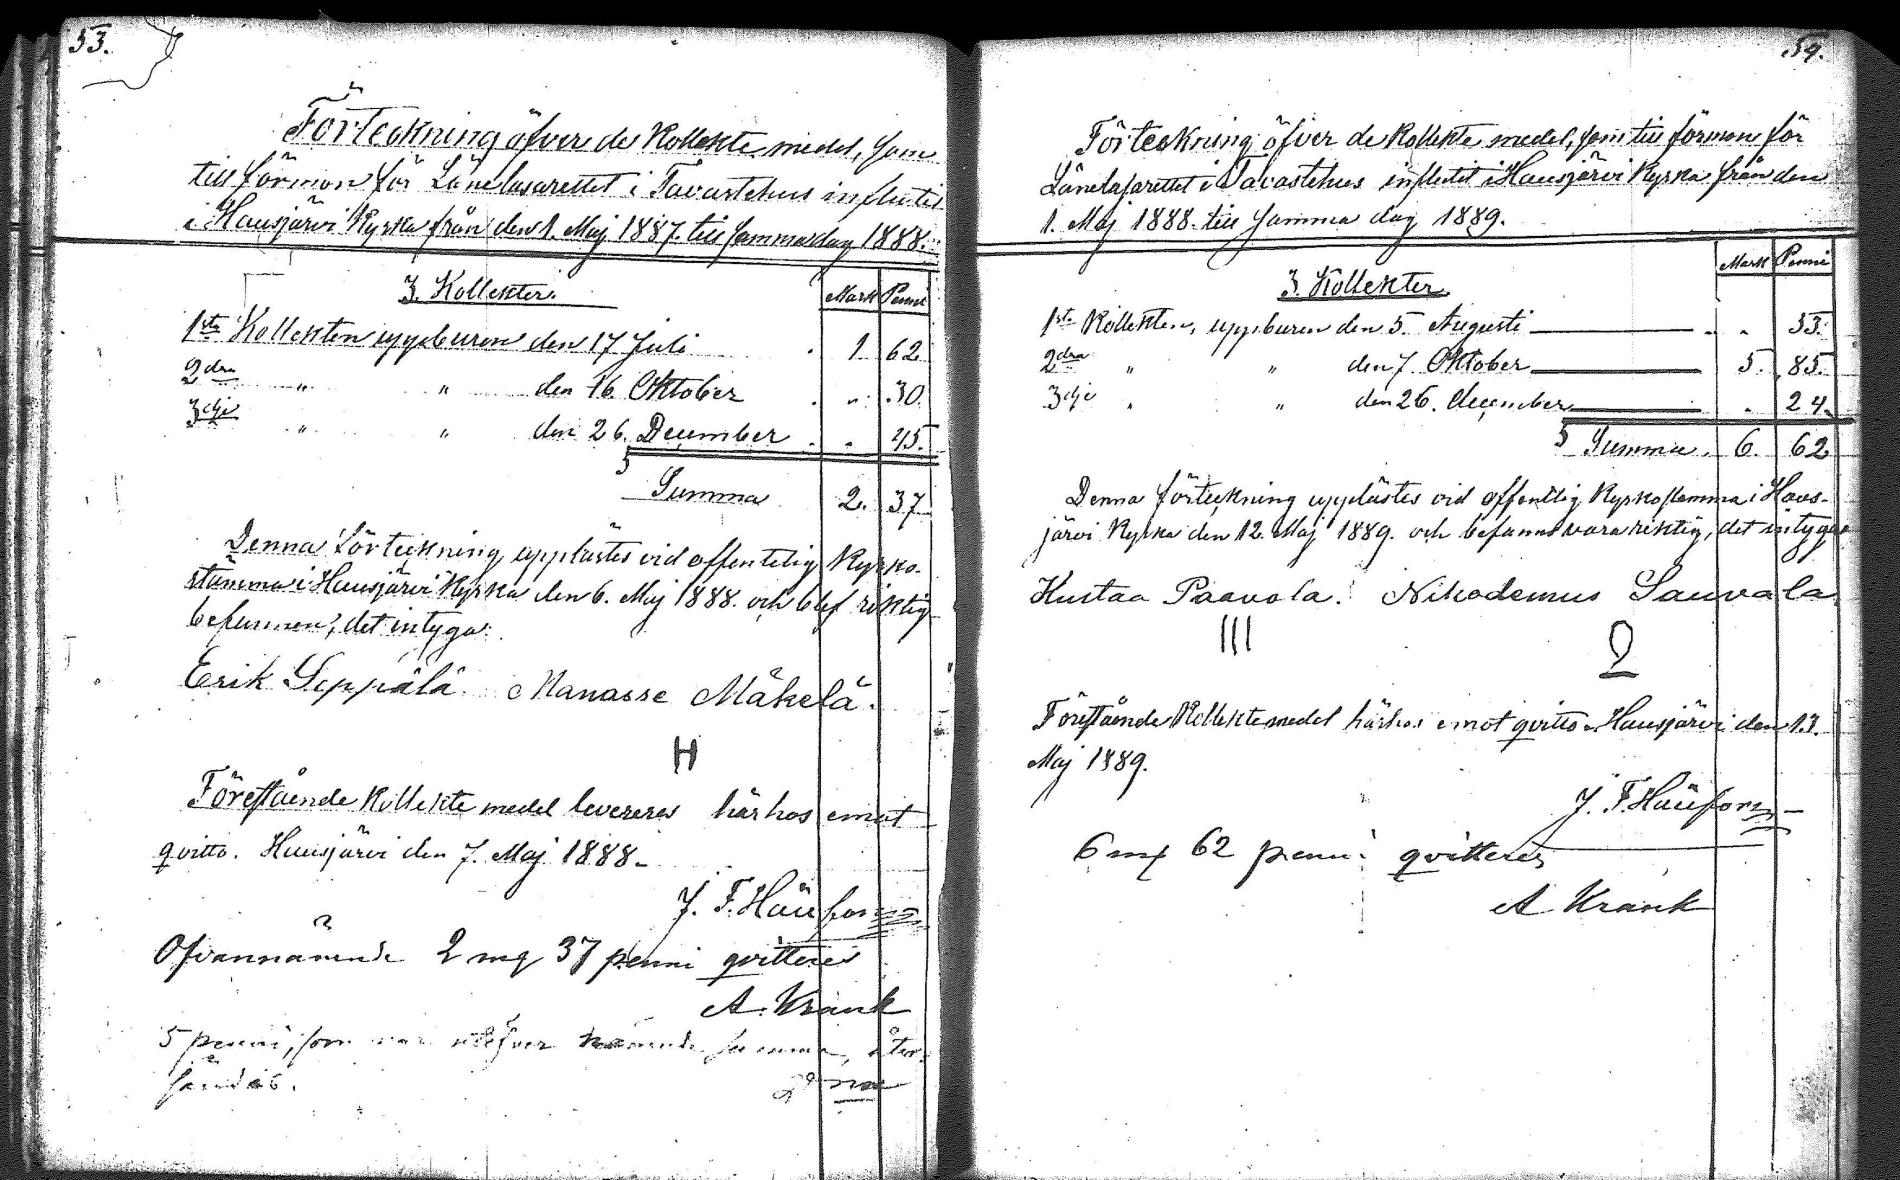 53.
Förteckning öfver de Kollekte medel, som
till förmon för Länelasarettet i Tavastehus influtit
i Hausjärvi Kyrka från den 1. Maj 1887. till samma dag 1888.
3. Kollekter. Mark Penni
1sta Kollekten uppburen den 17 Juli . 1 62
2dra " " den 16. Oktober . " 30
3dje " " den 26. December . " 45.
Summa 2. 37
Denna förteckning upplästes vid offentelig Kyrko-
stämma i Hausjärvi Kyrka den 6. Maj 1888. och blef riktig
befunnen, det intyga:
Erik Seppälä Manasse Mäkelä.
H
Förestående Kollekte medel levereres härhos emot
qvitto. Hausjärvi den 7. Maj 1888.
J. F. Häufors
Ofvannämnde 2 mq 37 penni qvitteres
A. Krank
5 penni, som var utöfver nämnde summa, åter-
sändes.
54.
Förteckning öfver de Kollekte medel, som till förmon för
Länelasarettet i Tavastehus influtit i Hausjärvi Kyrka från den
1. Maj 1888. till samma dag 1889.
Mark Penni
3. Kollekter.
1sta Kollekten, uppburen den 5. Augusti . " 53.
2dra " " den 7. Oktober 5. 85.
3dje " " den 26. December " 24.
Summa. 6. 62
Denna förteckning upplästes vid offentlig Kyrkostemma i Haus-
järvi Kyrka den 12. Maj 1889. och befanns vara riktig, det intyga
Kustaa Paavola. Nikodemus Sauvala
III
Förestående Kollektemedel härhos emot qvitto. Hausjärvi den 13.
Maj 1889.
J. F. Häufors
6 mq 62 penni qvitteres
A Krank